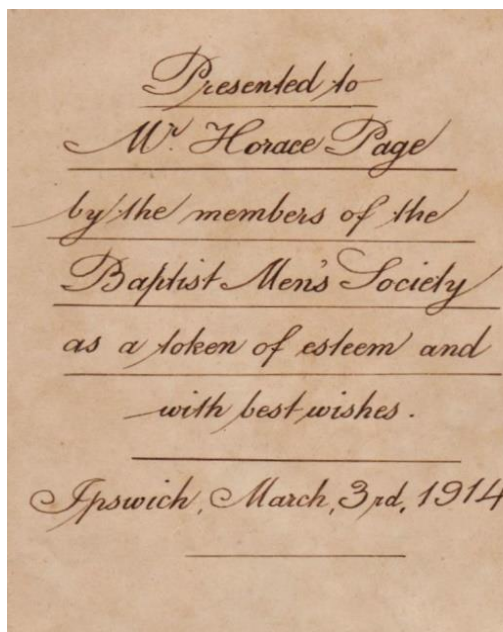 Presented to
Mr. Horace Page
by the members of the
Baptist Men's Society
as a token of esteem and
with best wishes.
Ipswich, March, 3rd, 1914